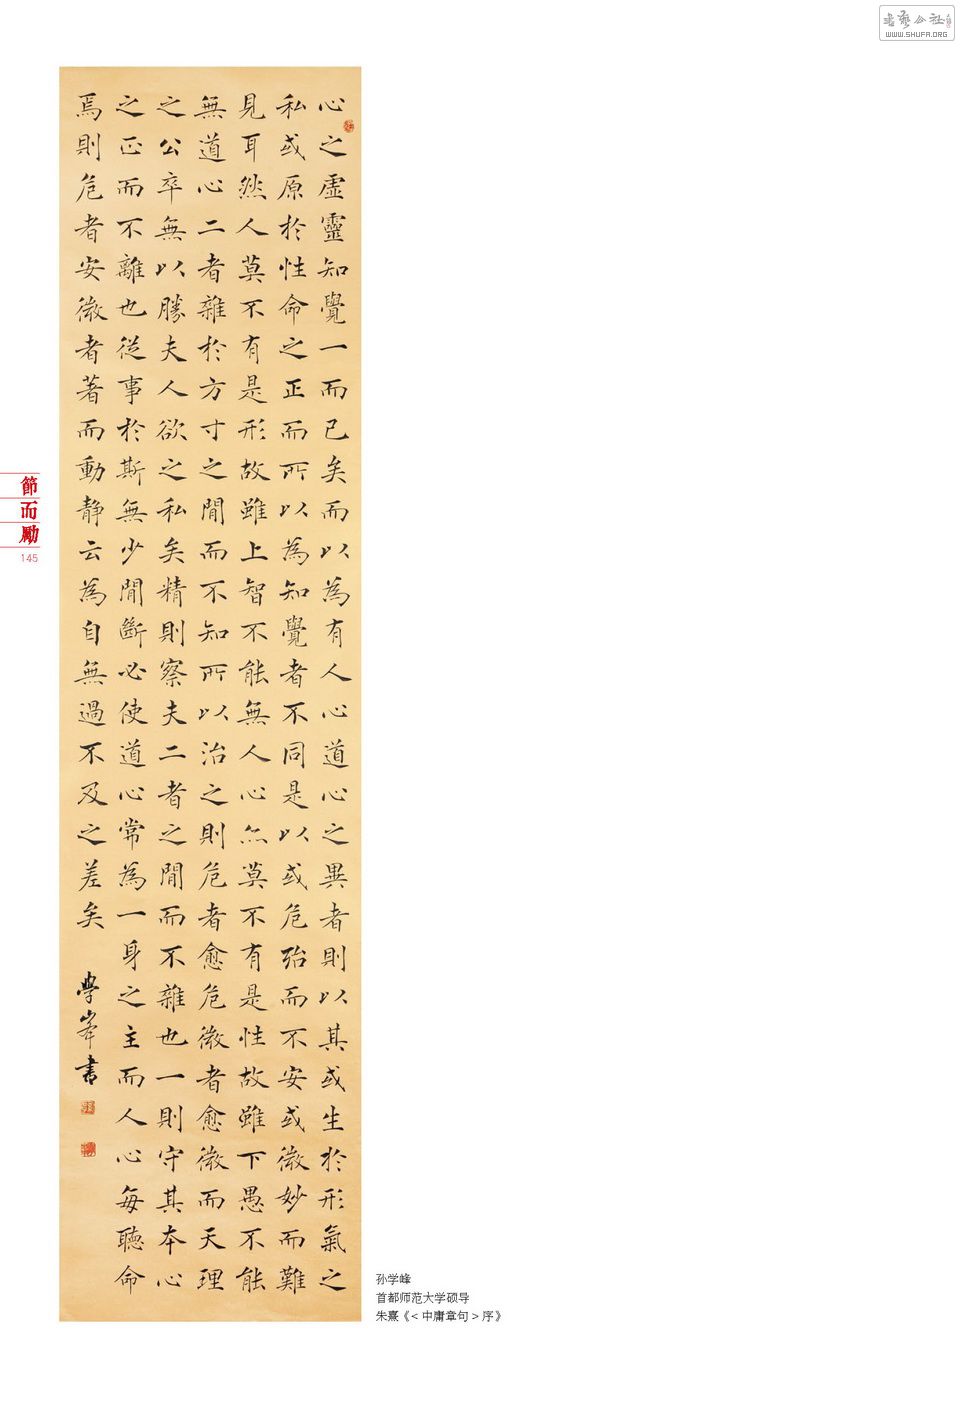 書藝公社
WWW.SHUFA.ORG
心之虛靈知覺一而已矣而以為有人心道心之異者則以其或生於形氣之
私或原於性命之正而所以為知覺者不同是以或危殆而不安或微妙而難
見耳然人莫不有是形故雖上智不能無人心亦莫不有是性故雖下愚不能
無道心二者雜於方寸之閒而不知所以治之則危者愈危微者愈微而天理
之公卒無以勝夫人欲之私矣精則察夫二者之閒而不雜也一則守其本心
之正而不離也從事於斯無少閒斷必使道心常為一身之主而人心每聽命
焉則危者安微者著而動静云為自無過不及之差矣
學峯書
節而勵
145
孙学峰
首都师范大学硕导
朱熹《<中庸章句>序》